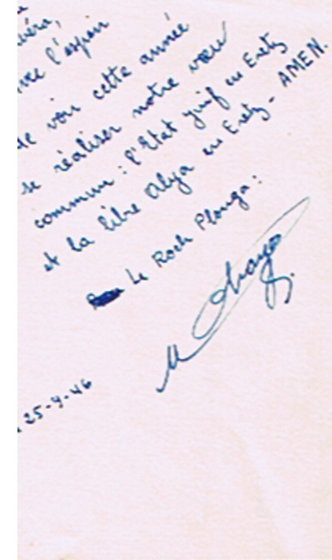 avec l'espoir
de voir cette année
se réaliser notre vœu
commun : l'Etat juif en Eretz
et la libre Alya en Eretz - AMEN.
Le Rosh Plouga :
25-9-46